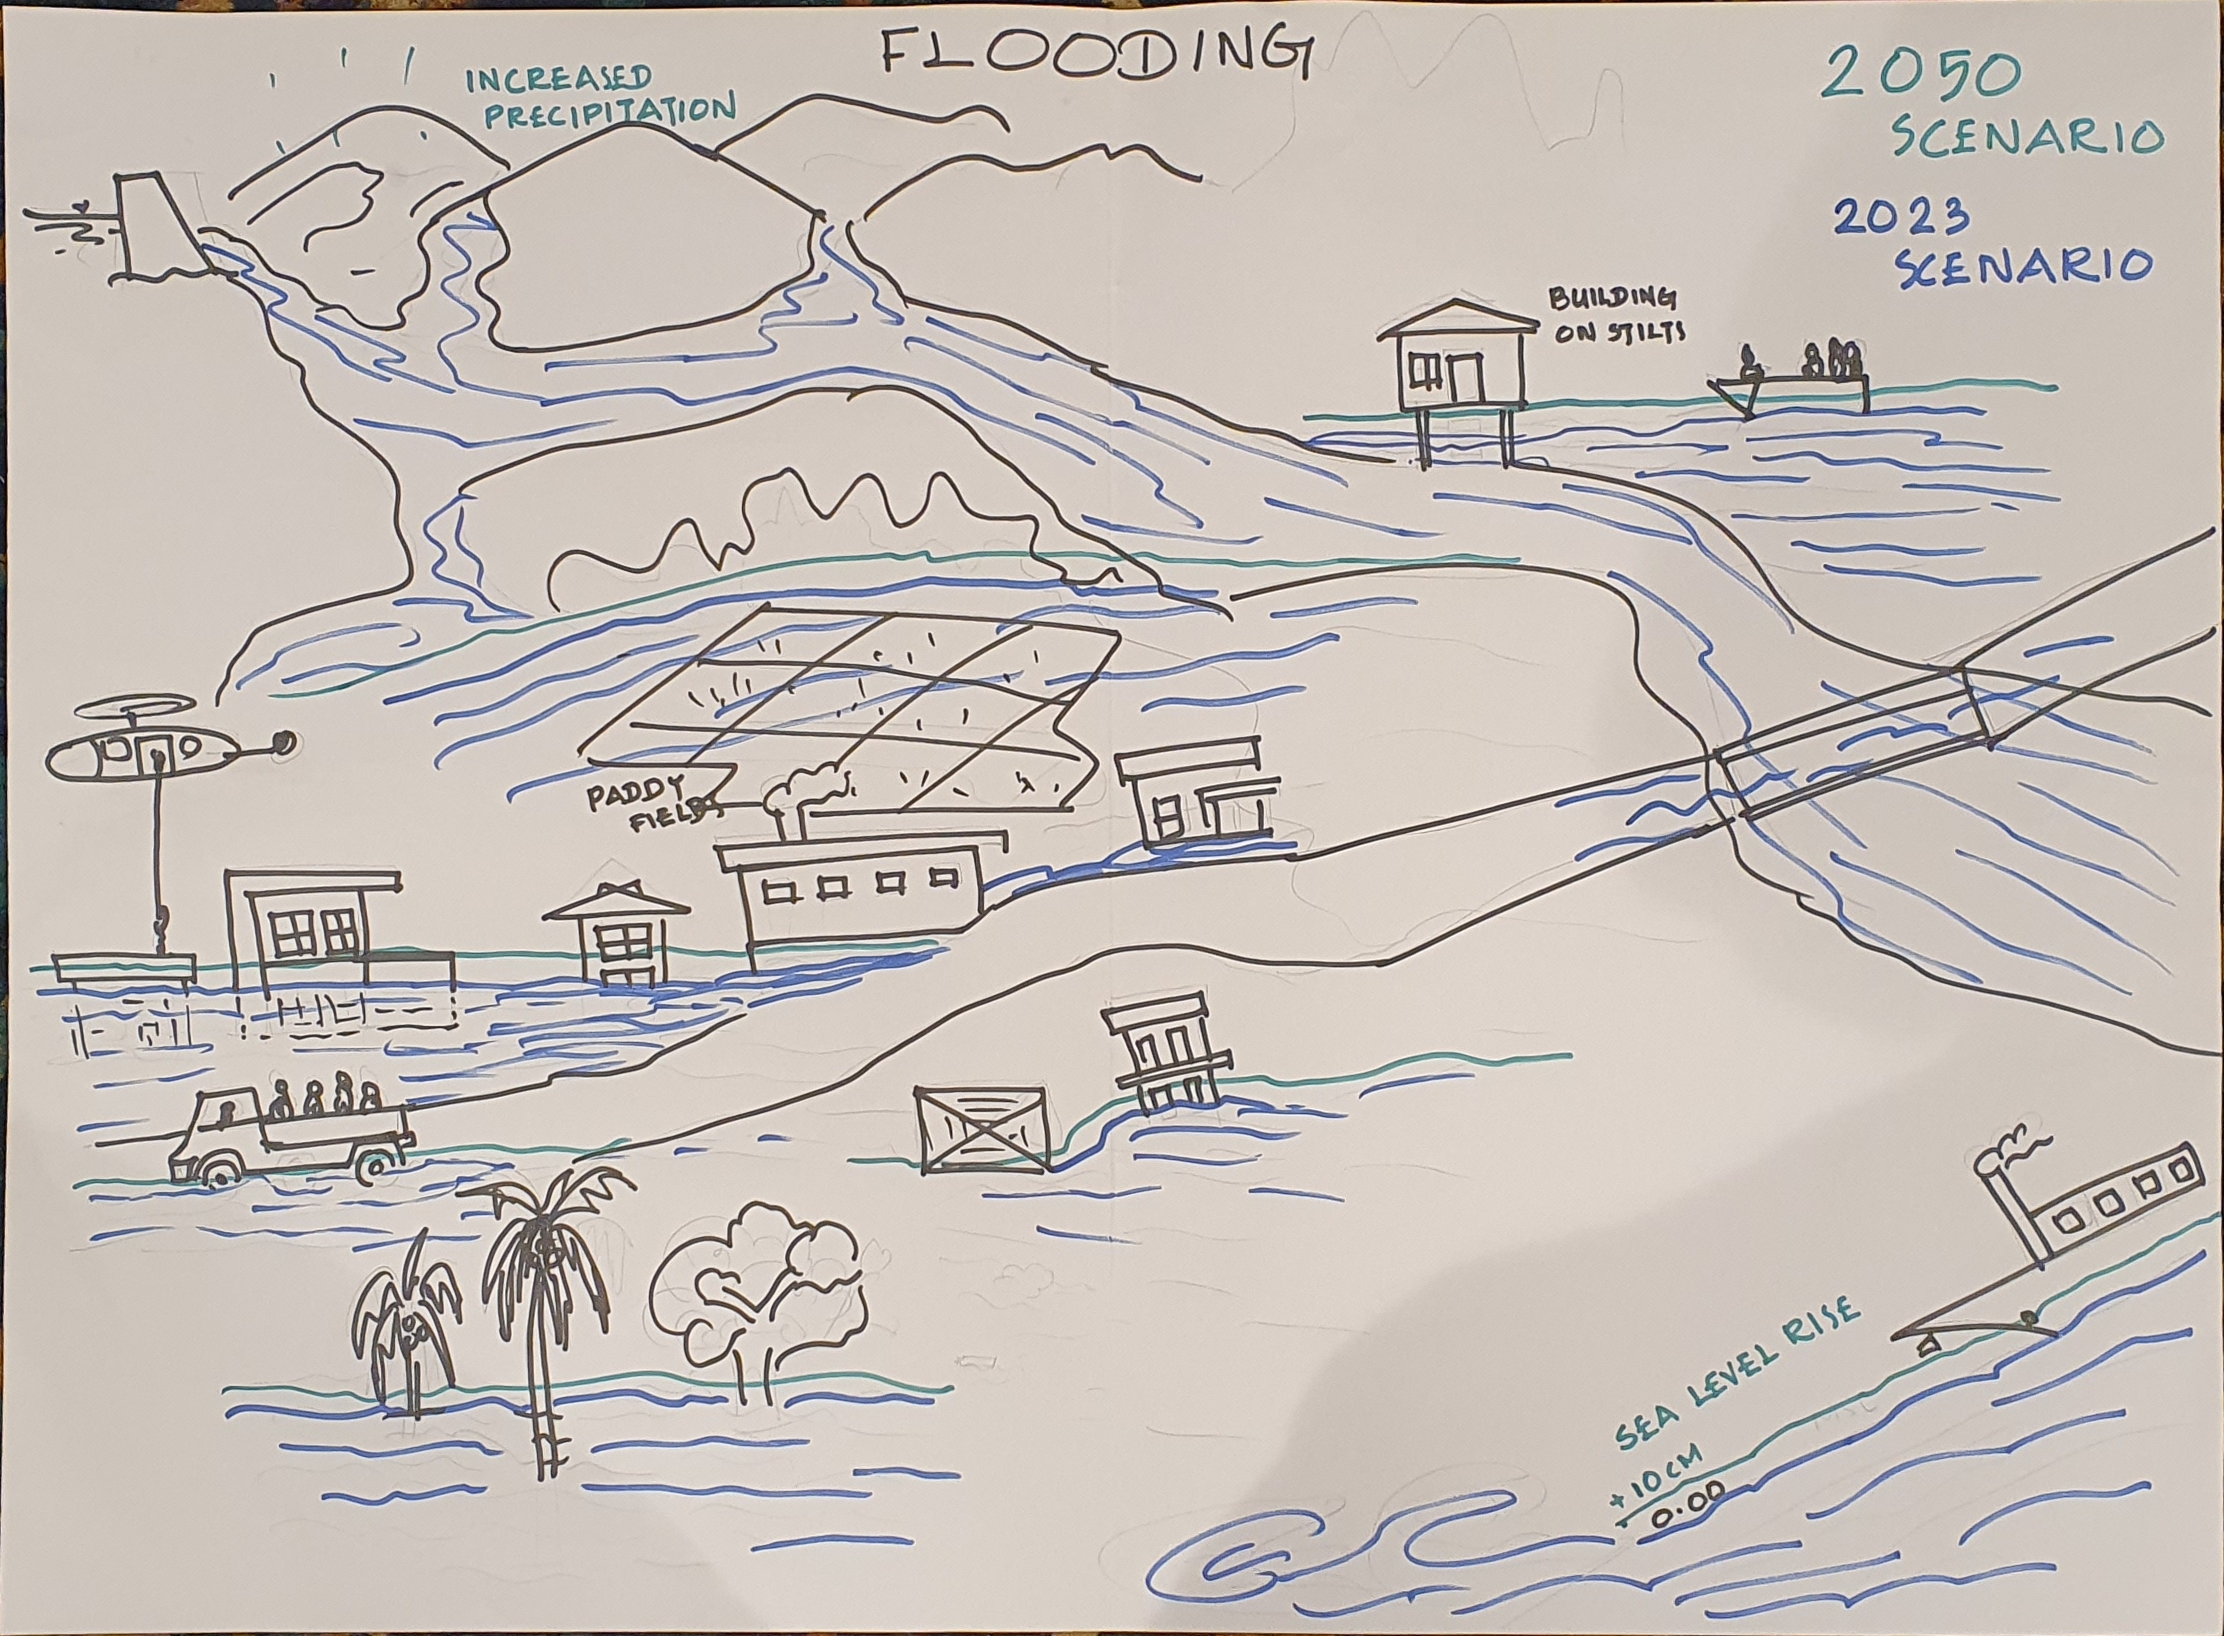 FLOODING
INCREASED
PRECIPITATION
2050
SCENARIO
2023
SCENARIO
BUILDING
ON STILTS
PADDY
FIELDS
SEA LEVEL RISE
+10CM
0.00